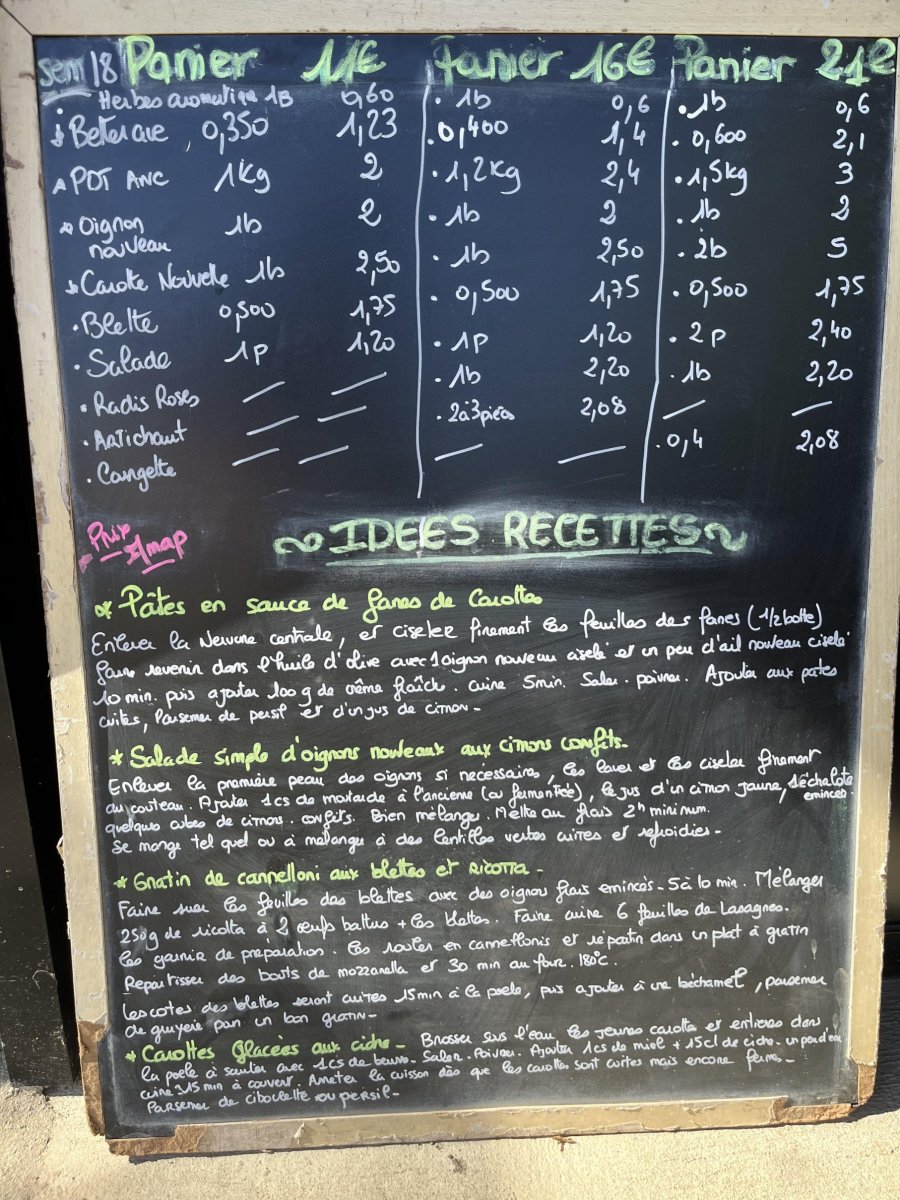 sem 18 Panier 11€ Panier 16€ Panier 21€
Herbes aromatique 1B 0,60 . 1b 0,6 . 1b 0,6
Betterave 0,350 1,23 . 0,400 1,4 . 0,600 2,1
PDT ANC 1Kg 2 . 1,2Kg 2,4 . 1,5Kg 3
Oignon nouveau 1b 2 . 1b 2 . 1b 2
Carotte Nouvelle 1b 2,50 . 1b 2,50 . 2b 5
. Blette 0,500 1,75 . 0,500 1,75 . 0,500 1,75
. Salade 1p 1,20 . 1P 1,20 . 2 p 2,40
. Radis Roses . 1b 2,20 . 1b 2,20
. Artichaut . 2à3pièces 2,08
. Courgette . 0,4 2,08
Prix Amap
~ IDEES RECETTES ~
* Pâtes en sauce de fanes de Carottes
Enlever la Nervure centrale, et ciseler finement les feuilles des fanes (1/2 botte)
faire revenir dans l'huile d'olive avec 1 oignon nouveau ciselé et un peu d'ail nouveau ciselé
10 min. puis ajouter 100 g de crème fraîche. cuire 5min. Saler. poivrer. Ajouter aux pates
cuites, Parsemer de persil et d'un jus de citron -
* Salade simple d'oignons nouveaux aux citrons confits.
Enlever la première peau des oignons si necessaire, les laver et les ciseler finement
au couteau. Ajouter 1cs de moutarde à l'ancienne (ou fermentée), le jus d'un citron jaune, 1 échalote émincée
quelques cubes de citrons confits. Bien mélanger. Mettre au frais 2h minimum.
Se mange tel quel ou a melanger à des lentilles vertes cuites et refroidies -
* Gratin de cannelloni aux blettes et RICOTTA -
Faire suer les feuilles des blettes avec des oignons frais emincés - 5 à 10 min. Mélanger
250g de ricotta à 2 oeufs battus + les blettes. Faire cuire 6 feuilles de Lasagnes.
les garnir de préparation. les rouler en cannellonis et répartir dans un plat à gratin
Répartisser des bouts de mozzarella et 30 min au four. 180°c.
Les cotes des blettes seront cuites 15min à la poele, puis ajouter à une béchamel, parsemer
de gruyère pour un bon gratin -
* Carottes Glacées aux cidre - Brosser sous l'eau les jeunes carottes et entières dans
la poele à sauter avec 1cs de beurre. Saler. Poivrer. Ajouter 1cs de miel + 15cl de cidre - un peu d'eau
cuire 15 min à couvert. Arreter la cuisson dès que les carottes sont cuites mais encore fermes -
Parsemer de ciboulette ou persil -